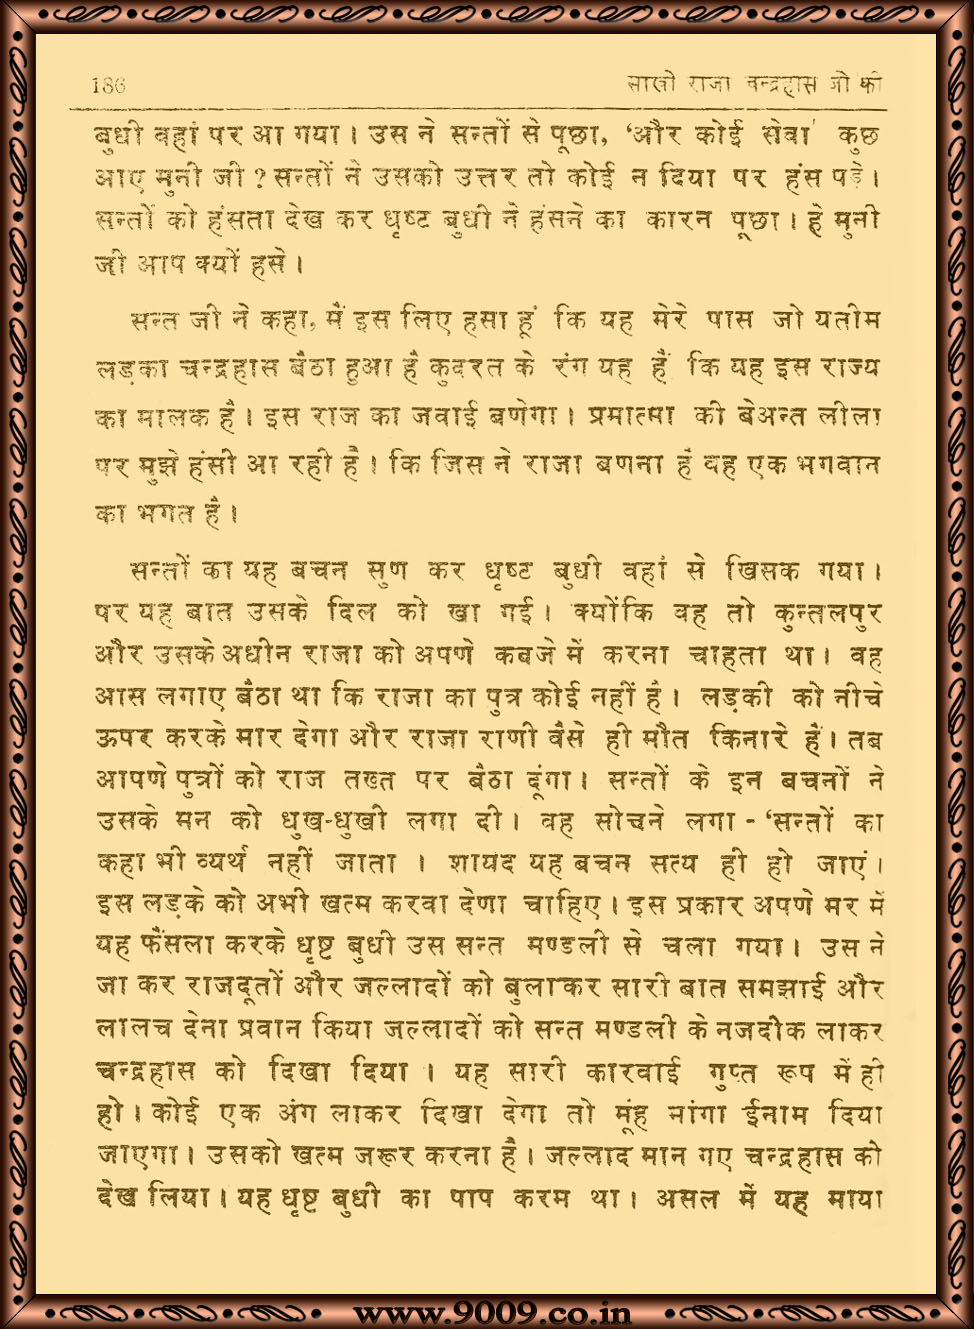 186 साखी राजा चन्द्रहास जी की
बुधी वहां पर आ गया। उस ने सन्तों से पूछा, 'और कोई सेवा' कुछ
आए मुनी जी ? सन्तों ने उसको उत्तर तो कोई न दिया पर हंस पड़े।
सन्तों को हंसता देख कर धृष्ट बुधी ने हंसने का कारन पूछा। हे मुनी
जी आप क्यों हसे।
सन्त जी ने कहा, मैं इस लिए हसा हूं कि यह मेरे पास जो यतीम
लड़का चन्द्रहास बैठा हुआ है कुदरत के रंग यह हैं कि यह इस राज्य
का मालक है। इस राज का जवाई बणेगा। प्रमात्मा की बेअन्त लीला
पर मुझे हंसी आ रही है। कि जिस ने राजा बणना है वह एक भगवान
का भगत है।
सन्तों का यह बचन सुण कर धृष्ट बुधी वहां से खिसक गया।
पर यह बात उसके दिल को खा गई। क्योंकि वह तो कुन्तलपुर
और उसके अधीन राजा को अपणे कबजे में करना चाहता था। वह
आस लगाए बैठा था कि राजा का पुत्र कोई नहीं है। लड़की को नीचे
ऊपर करके मार देगा और राजा राणी वैसे ही मौत किनारे हैं। तब
आपणे पुत्रों को राज तख्त पर बैठा दूंगा। सन्तों के इन बचनों ने
उसके मन को धुख-धुखी लगा दी। वह सोचने लगा - 'सन्तों का
कहा भी व्यर्थ नहीं जाता । शायद यह बचन सत्य ही हो जाएं।
इस लड़के को अभी खत्म करवा देणा चाहिए। इस प्रकार अपणे मर में
यह फैंसला करके धृष्ट बुधी उस सन्त मण्डली से चला गया। उस ने
जा कर राजदूतों और जल्लादों को बुलाकर सारी बात समझाई और
लालच देना प्रवान किया जल्लादों को सन्त मण्डली के नजदीक लाकर
चन्द्रहास को दिखा दिया । यह सारी कारवाई गुप्त रूप में ही
हो। कोई एक अंग लाकर दिखा देगा तो मूंह मांगा ईनाम दिया
जाएगा। उसको खत्म जरूर करना है। जल्लाद मान गए चन्द्रहास को
देख लिया। यह धृष्ट बुधी का पाप करम था। असल में यह माया
www.9009.co.in